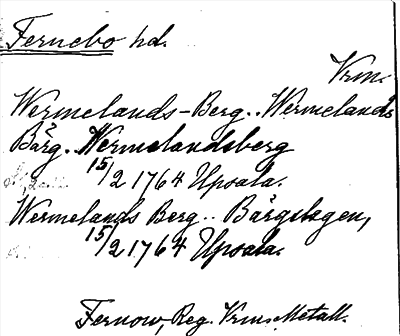 Fernebo hd.
Vrm.
Wermelands-Berg.. Wermelands
Bärg. Wermelandsberg
15/2 1764 Upsala.
Wermelands Berg.. Bärgslagen,
15/2 1764 Upsala.
Fernow, Reg. Vrm. Metall.